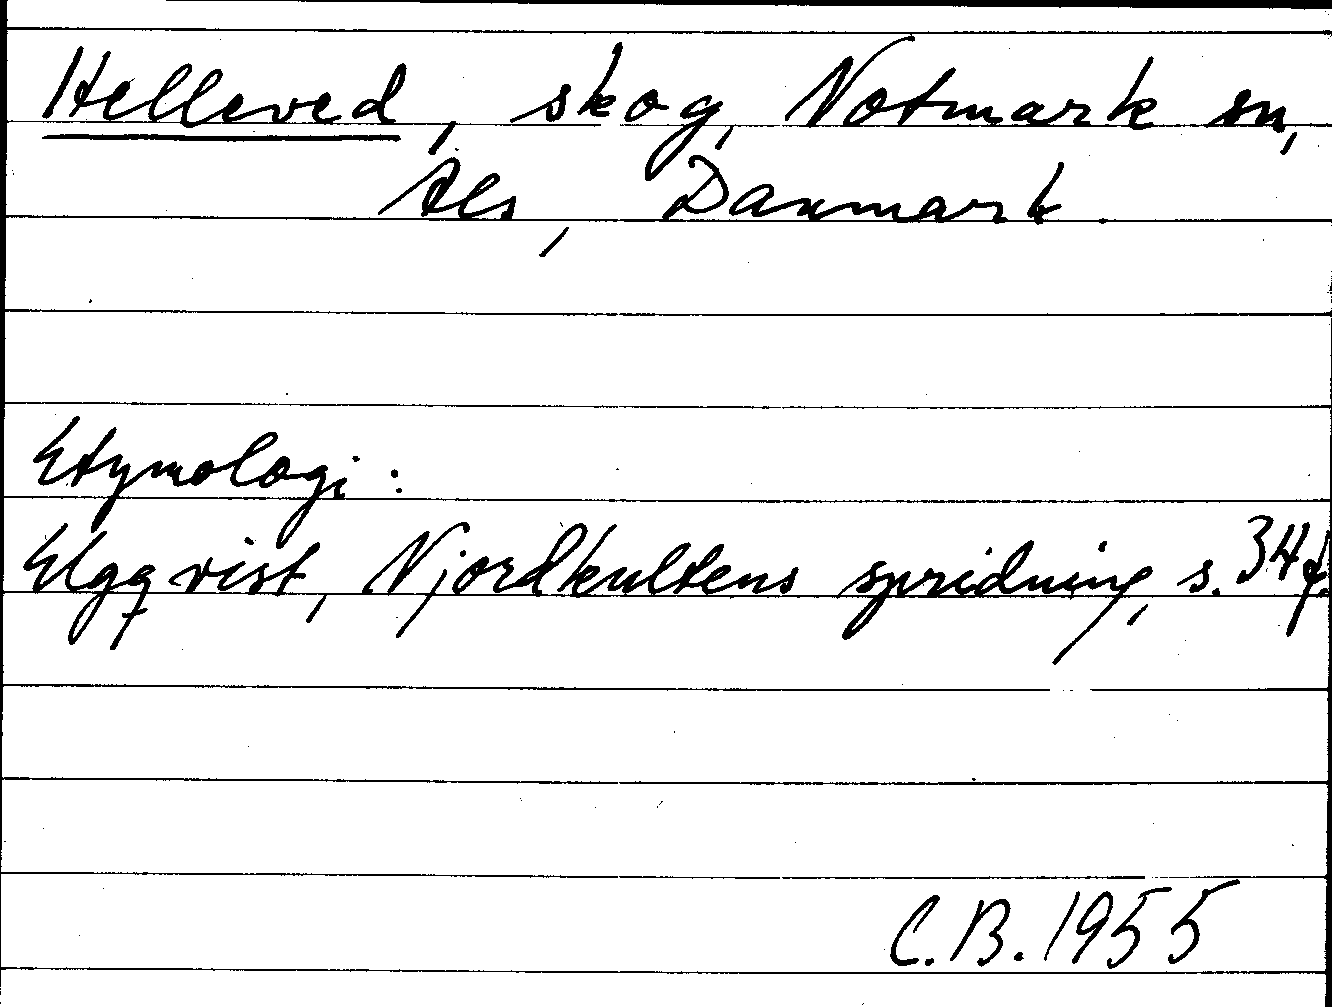 Helleved, skog, Notmark sn,
Als, Danmark.
Etymologi:
Elgqvist, Njordkultens spridning, s. 34 f.
C.B. 1955